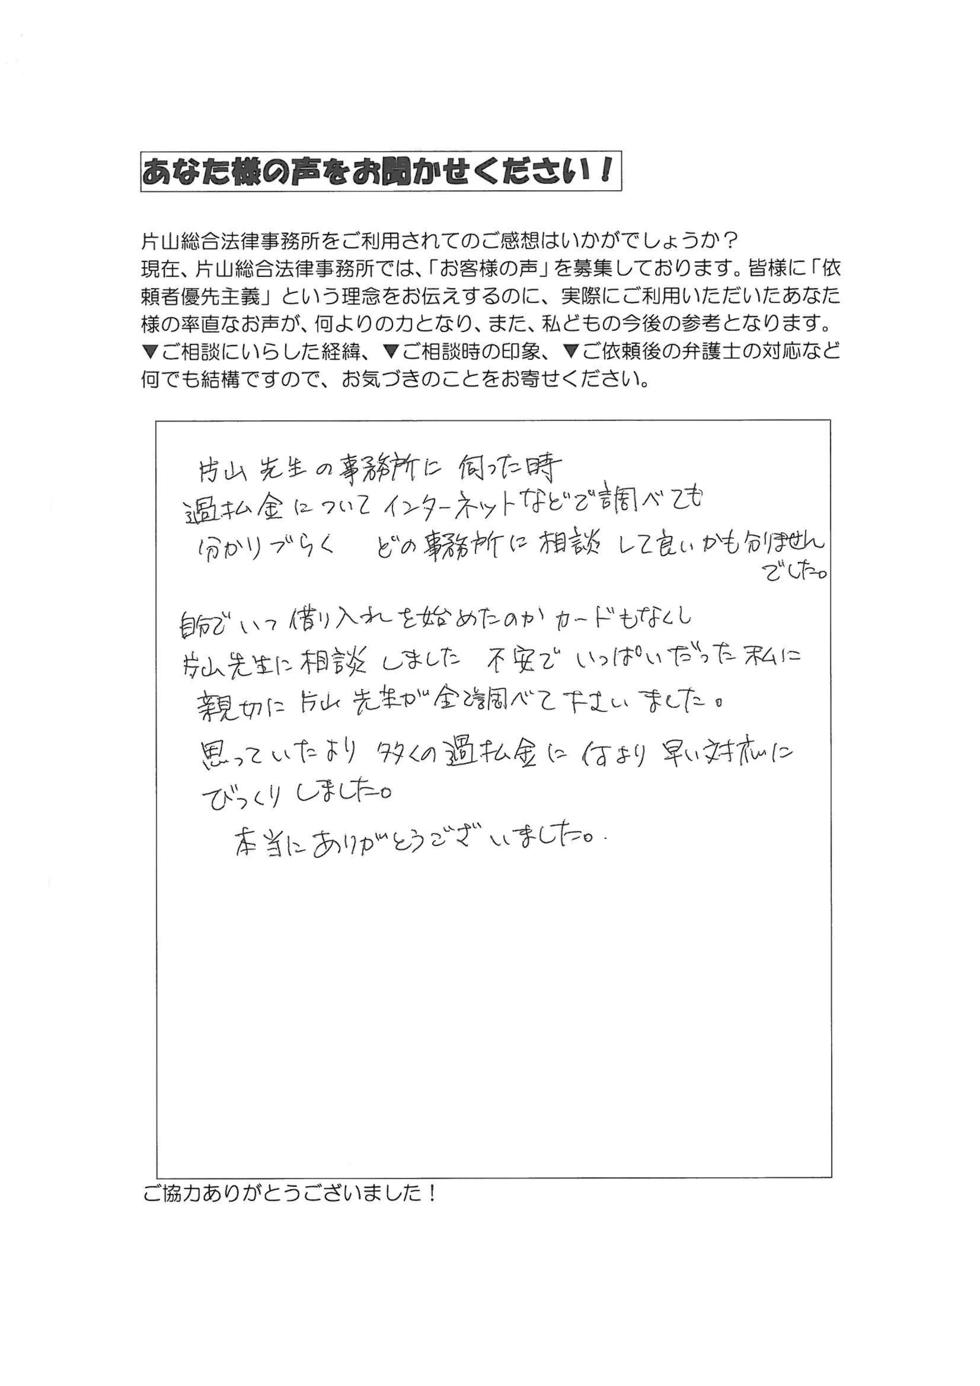 あなた様の声をお聞かせください！
片山総合法律事務所をご利用されてのご感想はいかがでしょうか？
現在、片山総合法律事務所では、「お客様の声」を募集しております。皆様に「依
頼者優先主義」という理念をお伝えするのに、実際にご利用いただいたあなた
様の率直なお声が、何よりの力となり、また、私どもの今後の参考となります。
▼ご相談にいらした経緯、▼ご相談時の印象、▼ご依頼後の弁護士の対応など
何でも結構ですので、お気づきのことをお寄せください。
片山先生の事務所に 伺った時
過払金についてインターネットなどで調べても
分かりづらく どの事務所に相談して良いかも分りません
でした。
自分でいつ借り入れを始めたのかカードもなくし
片山先生に相談しました 不安でいっぱいだった私に
親切に片山先生が全て調べて下さいました。
思っていたより多くの過払金に何より早い対応に
びっくりしました。
本当にありがとうございました。
ご協力ありがとうございました！